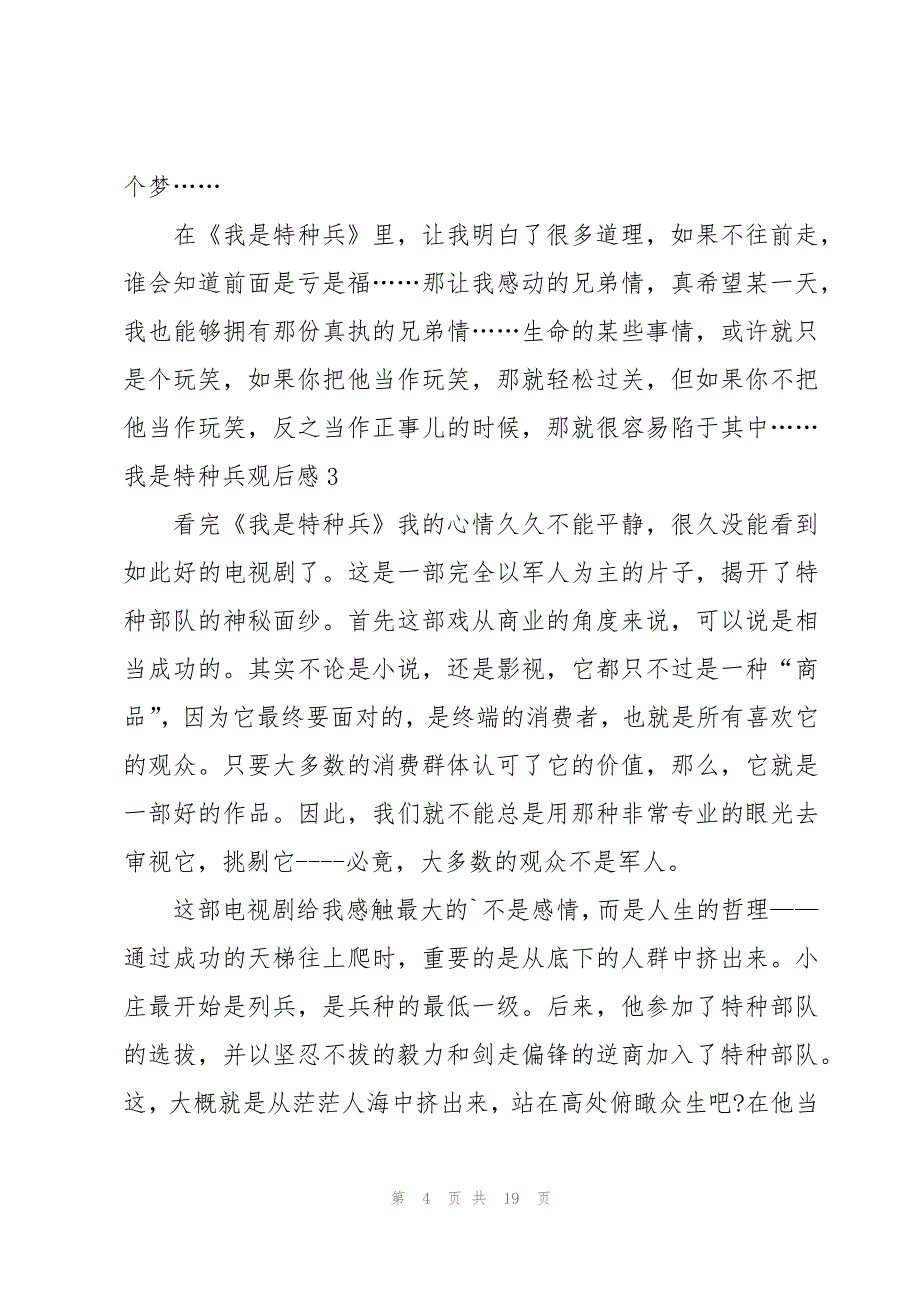 个梦……
在《我是特种兵》里，让我明白了很多道理，如果不往前走，
谁会知道前面是亏是福……那让我感动的兄弟情，真希望某一天，
我也能够拥有那份真执的兄弟情……生命的某些事情，或许就只
是个玩笑，如果你把他当作玩笑，那就轻松过关，但如果你不把
他当作玩笑，反之当作正事儿的时候，那就很容易陷于其中……
我是特种兵观后感 3
看完《我是特种兵》我的心情久久不能平静，很久没能看到
如此好的电视剧了。这是一部完全以军人为主的片子，揭开了特
种部队的神秘面纱。首先这部戏从商业的角度来说，可以说是相
当成功的。其实不论是小说，还是影视，它都只不过是一种“商
品”，因为它最终要面对的，是终端的消费者，也就是所有喜欢它
的观众。只要大多数的消费群体认可了它的价值，那么，它就是
一部好的作品。因此，我们就不能总是用那种非常专业的眼光去
审视它，挑剔它----必竟，大多数的观众不是军人。
这部电视剧给我感触最大的`不是感情，而是人生的哲理——
通过成功的天梯往上爬时，重要的是从底下的人群中挤出来。小
庄最开始是列兵，是兵种的最低一级。后来，他参加了特种部队
的选拔，并以坚忍不拔的毅力和剑走偏锋的逆商加入了特种部队。
这，大概就是从茫茫人海中挤出来，站在高处俯瞰众生吧?在他当
第 4 页 共 19 页